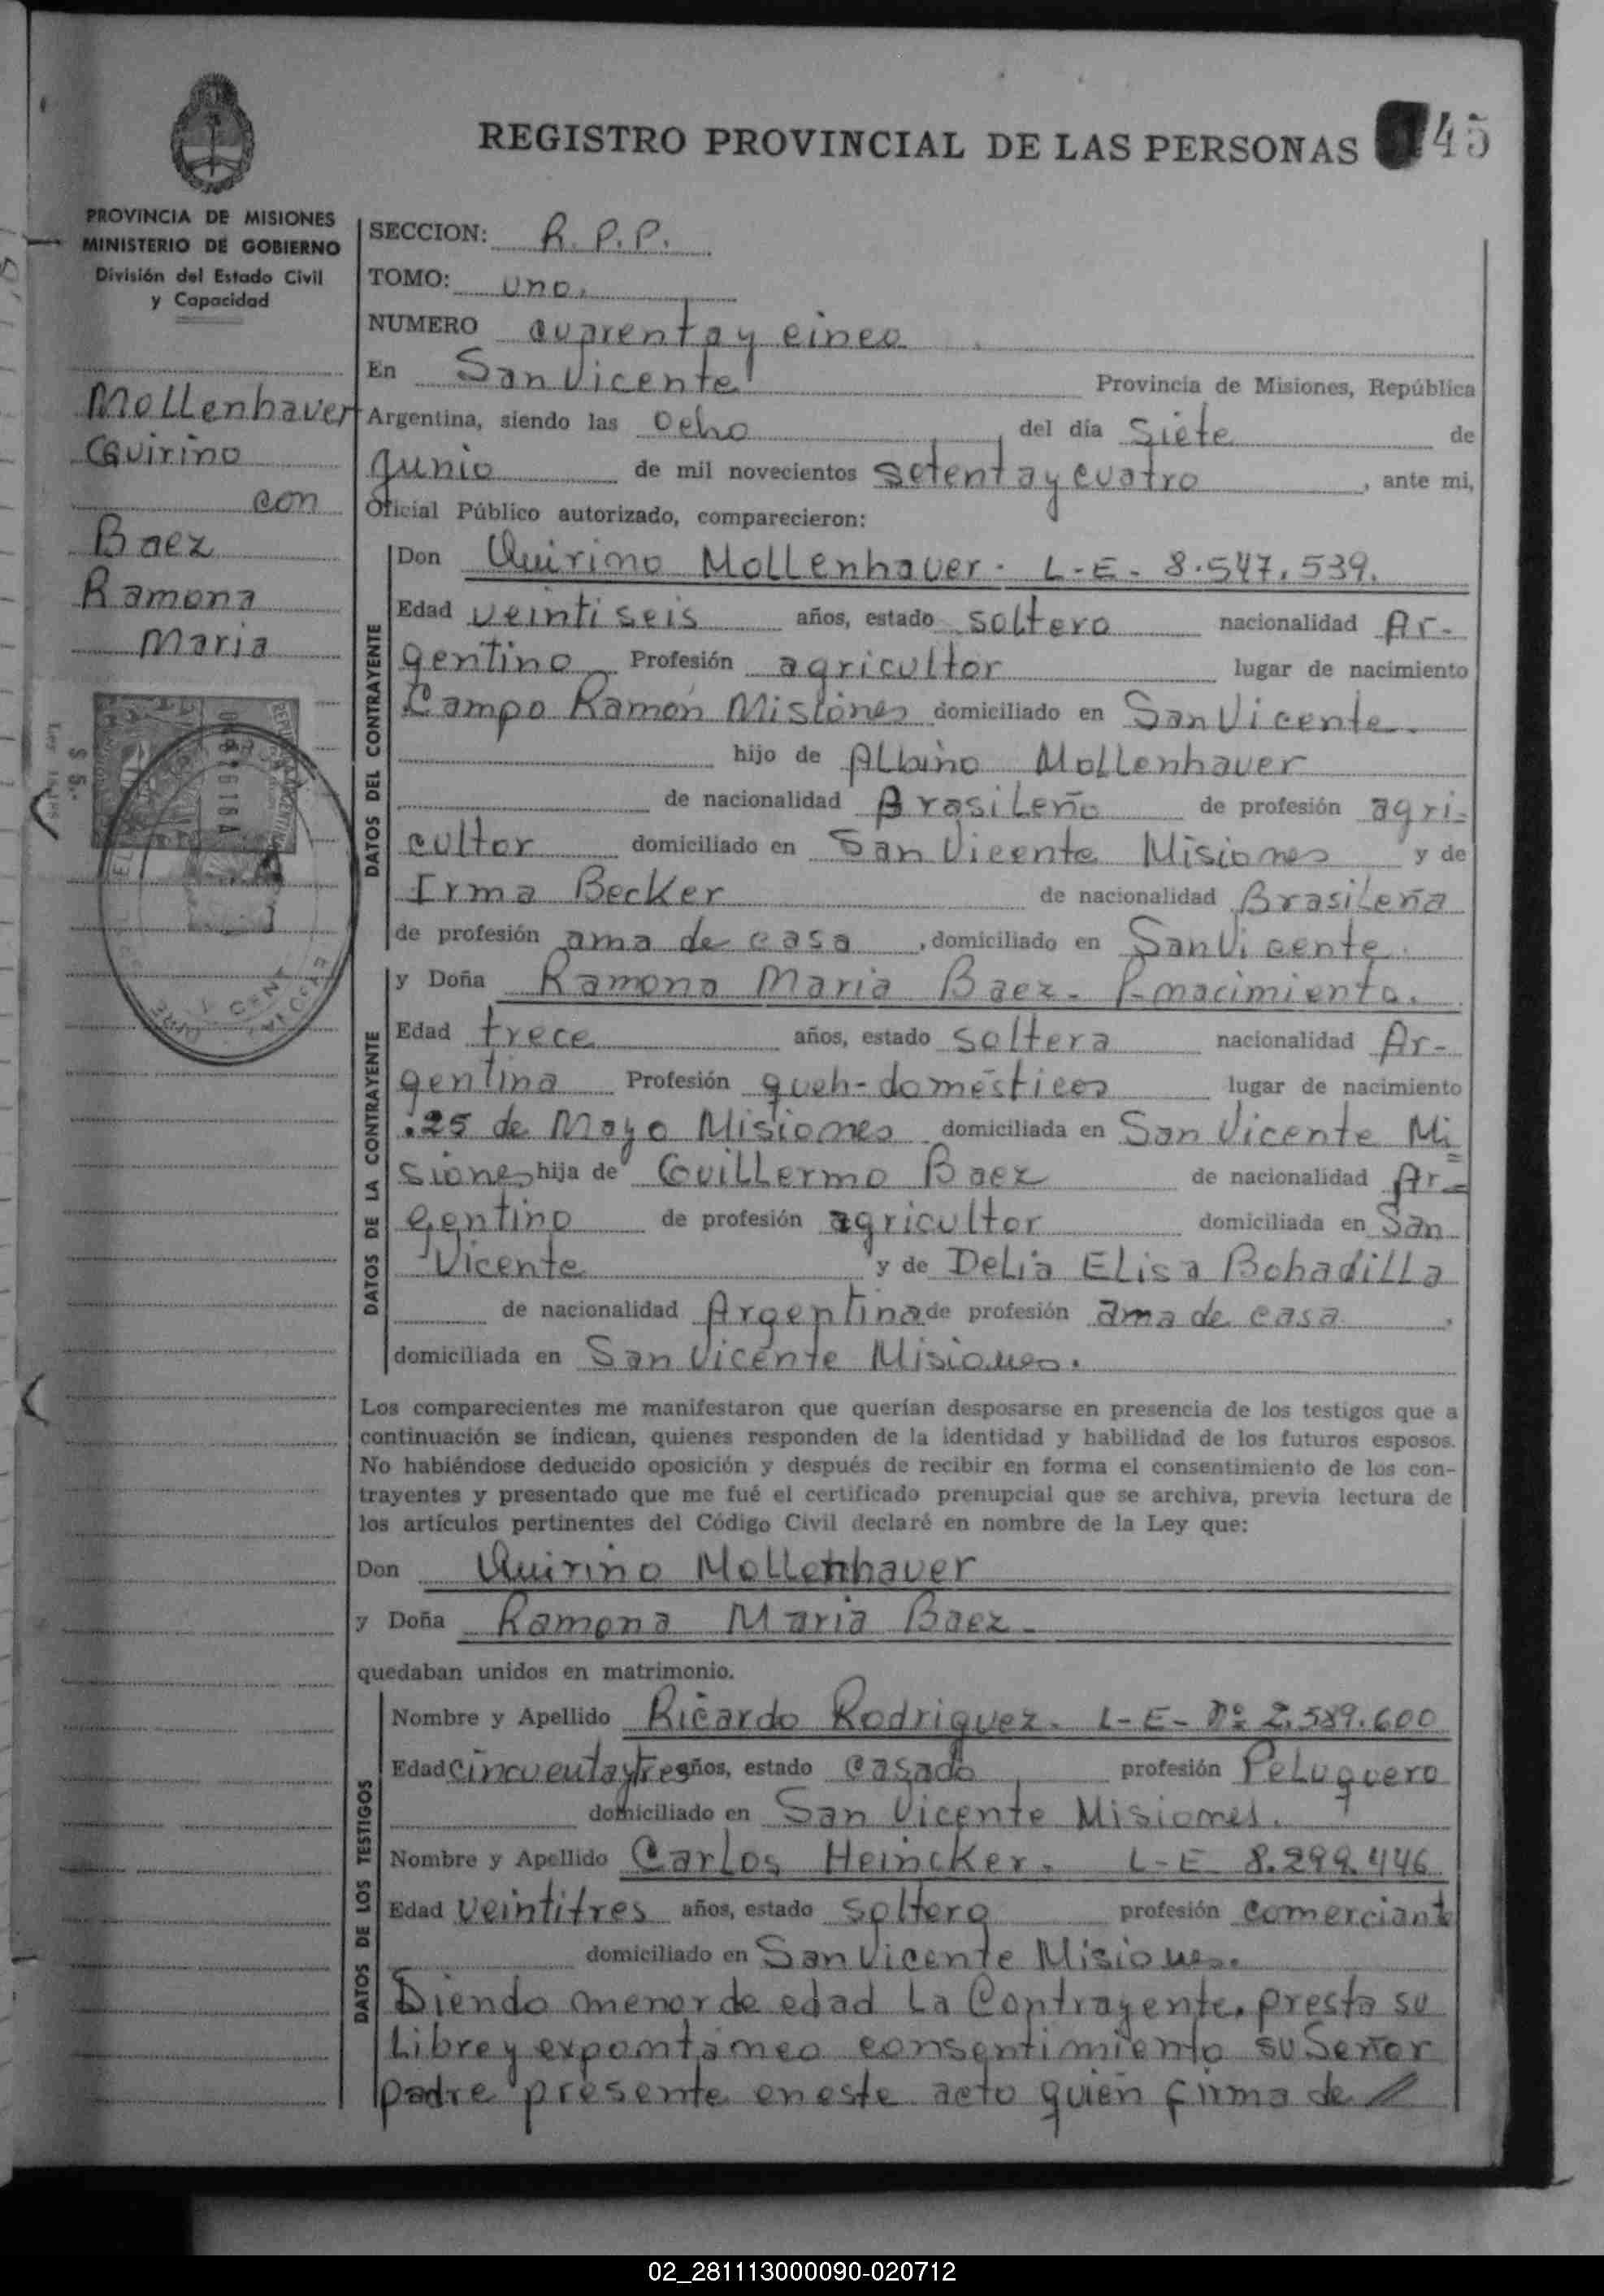 REGISTRO PROVINCIAL DE LAS PERSONAS 45
PROVINCIA DE MISIONES
MINISTERIO DE GOBIERNO
División del Estado Civil
y Capacidad
Mollenhaver
Quirino
con
Baez
Ramona
Maria
SECCION: R. P. P.
TOMO: uno.
NUMERO cuarenta y cinco
En San Vicente Provincia de Misiones, República
Argentina, siendo las ocho del día siete de
junio de mil novecientos setenta y cuatro, ante mi,
Oficial Público autorizado, comparecieron:
DATOS DEL CONTRAYENTE
Don Quirino Mollenhaver. L-E- 8.547.539.
Edad veintiseis años, estado soltero nacionalidad Ar-
gentino Profesión agricultor lugar de nacimiento
Campo Ramón Misiones domiciliado en San Vicente.
hijo de Albino Mollenhaver
de nacionalidad Brasileño de profesión agri-
cultor domiciliado en San Vicente Misiones y de
Irma Becker de nacionalidad Brasileña
de profesión ama de casa, domiciliado en San Vicente.
DATOS DE LA CONTRAYENTE
y Doña Ramona Maria Baez- P-nacimiento.
Edad trece años, estado soltera nacionalidad Ar-
gentina Profesión queh-domésticos lugar de nacimiento
.25 de Mayo Misiones domiciliada en San Vicente Mi=
siones hija de Guillermo Baez de nacionalidad Ar=
gentino de profesión agricultor domiciliada en San
Vicente y de Delia Elisa Bobadilla
de nacionalidad Argentina de profesión ama de casa,
domiciliada en San Vicente Misiones.
Los comparecientes me manifestaron que querían desposarse en presencia de los testigos que a
continuación se indican, quienes responden de la identidad y habilidad de los futuros esposos.
No habiéndose deducido oposición y después de recibir en forma el consentimiento de los con-
trayentes y presentado que me fué el certificado prenupcial que se archiva, previa lectura de
los artículos pertinentes del Código Civil declaré en nombre de la Ley que:
Don Quirino Mollenhaver
y Doña Ramona Maria Baez-
quedaban unidos en matrimonio.
DATOS DE LOS TESTIGOS
Nombre y Apellido Ricardo Rodriguez. L-E- Nº 2.589.600
Edad cincuentaytres años, estado casado profesión Peluquero
domiciliado en San Vicente Misiones.
Nombre y Apellido Carlos Heincker. L-E 8.299.446
Edad veintitres años, estado soltero profesión comerciante
domiciliado en San Vicente Misiones.
Siendo menor de edad La Contrayente, presta su
Libre y expontáneo consentimiento su Señor
padre presente en este acto quien firma de
02_281113000090-020712